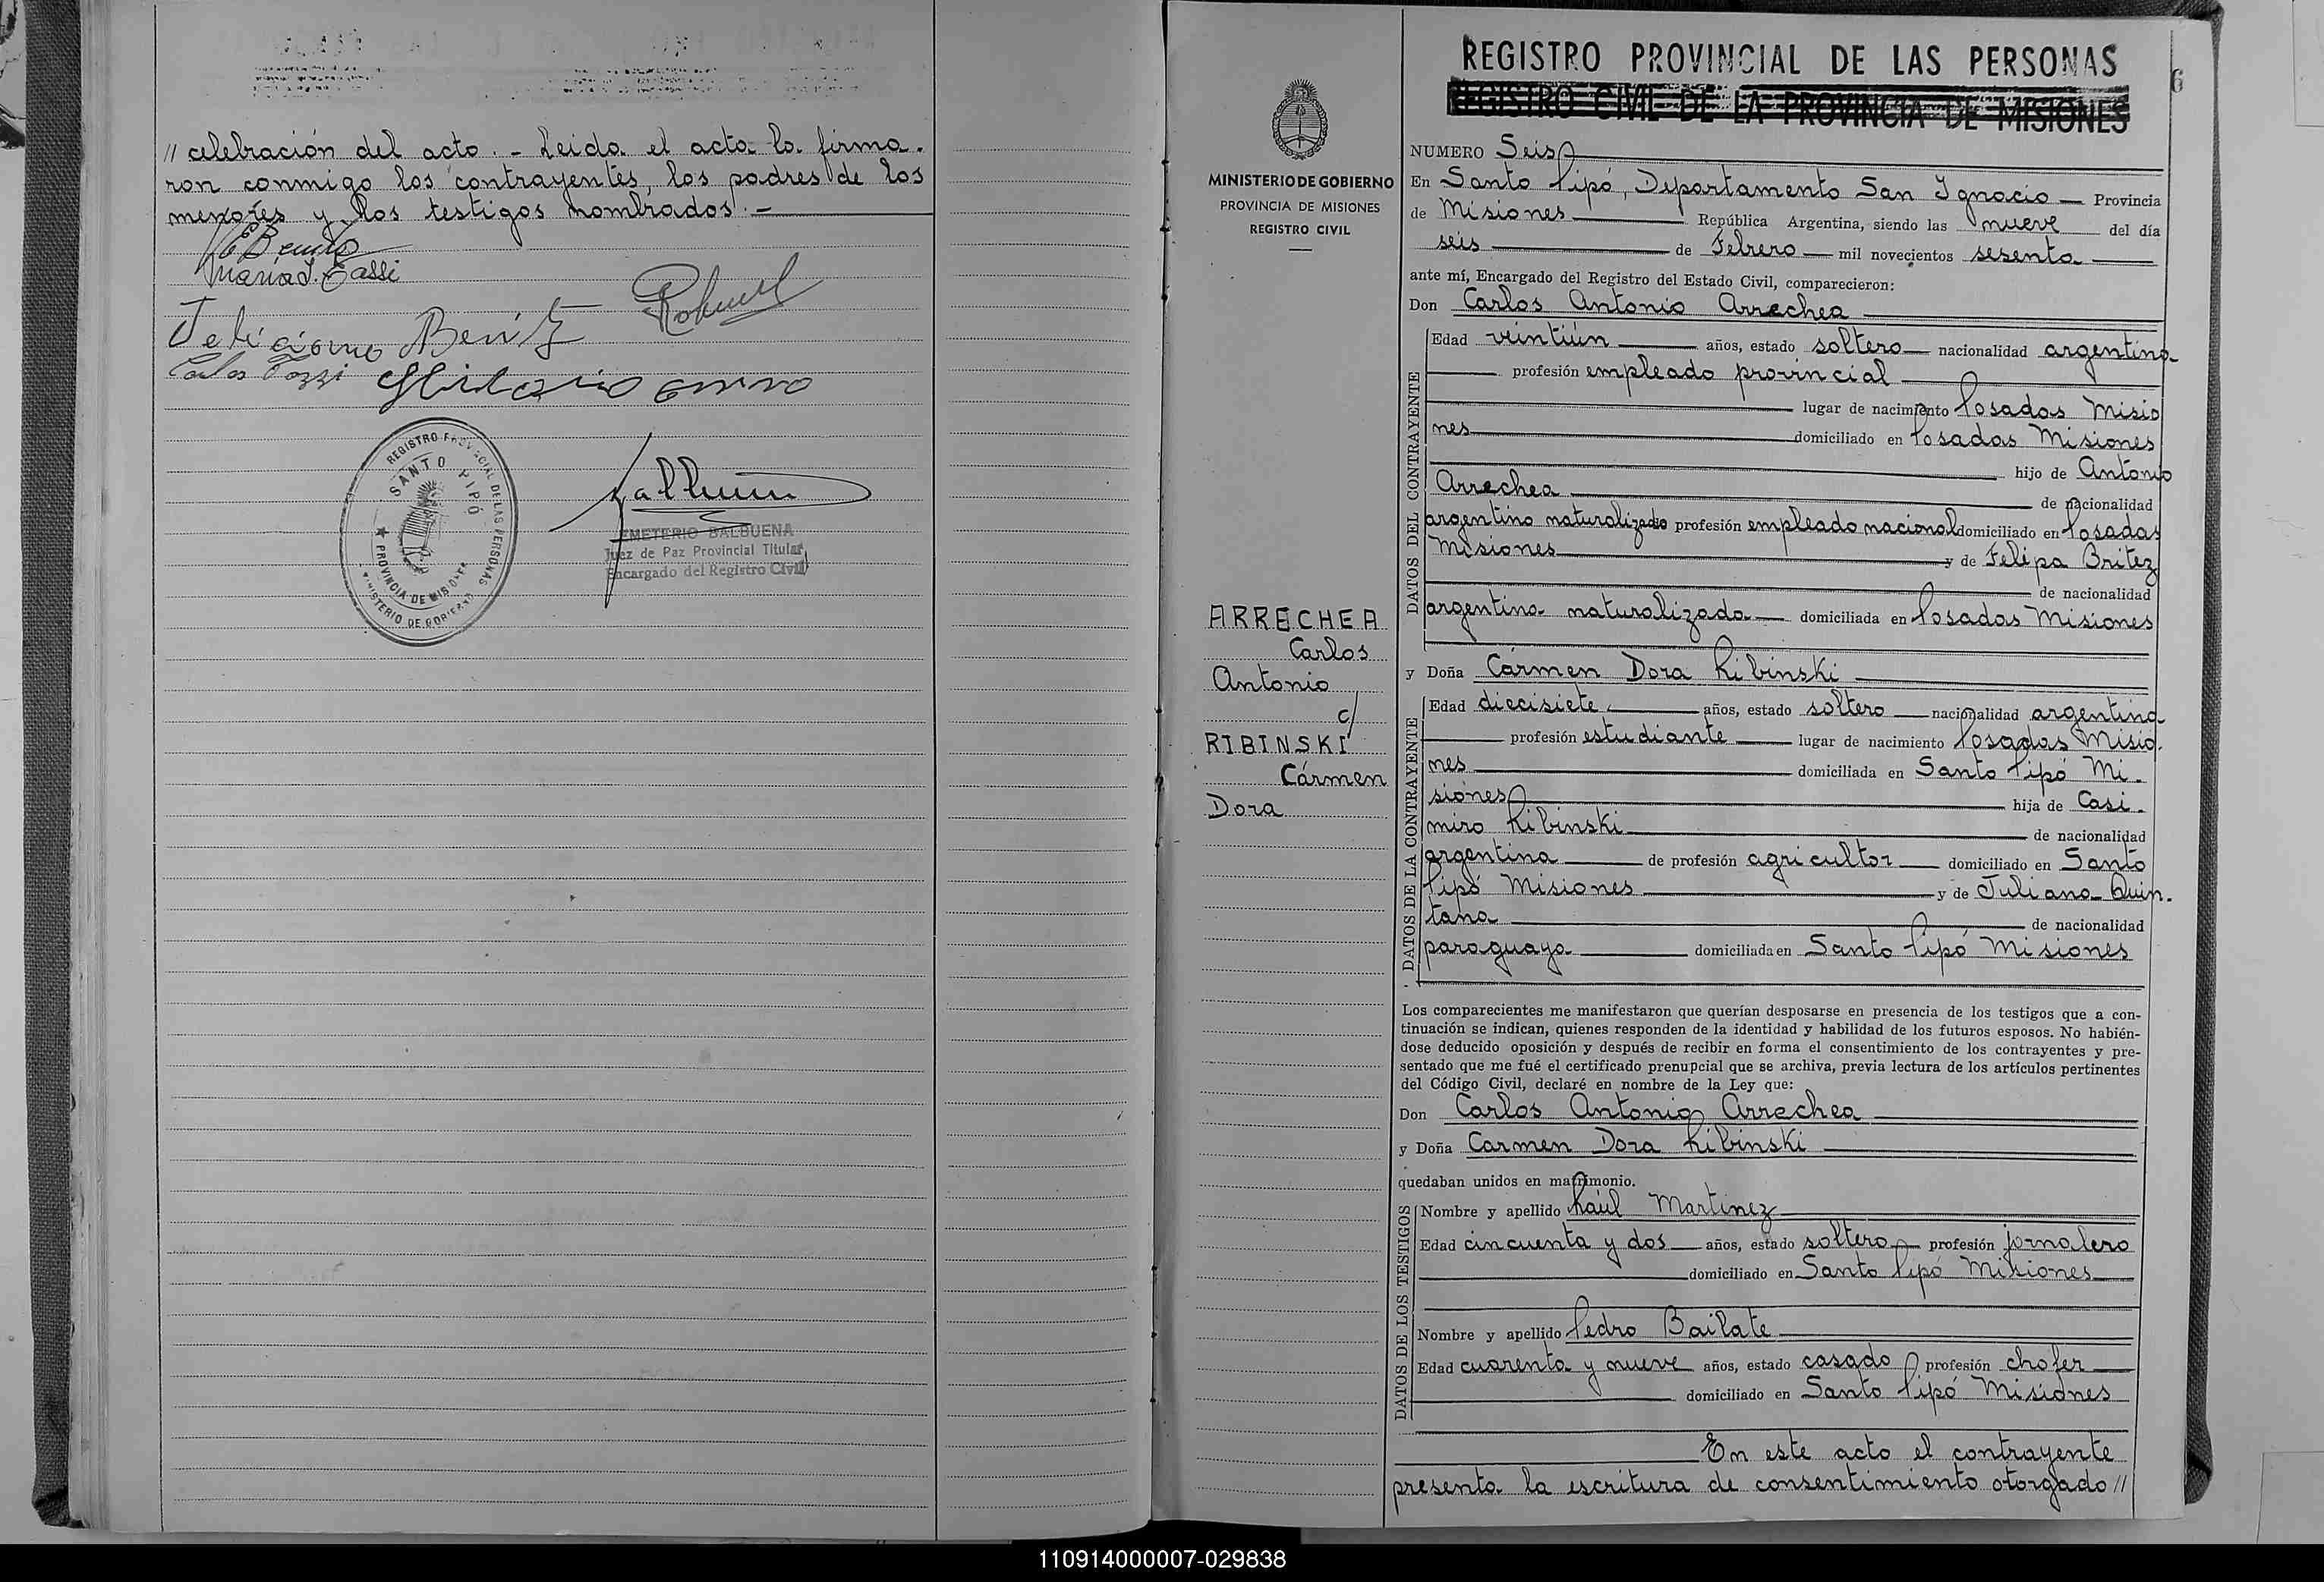 // celebración del acto. - Leida el acto la firma-
ron conmigo los contrayentes, los padres de los
menores y los testigos nombrados. -
Feliciano Benitz
Carlos Pozzi
REGISTRO PROVINCIAL DE LAS PERSONAS
SANTO PIPÓ
PROVINCIA DE MISIONES
MINISTERIO DE GOBIERNO
EMETERIO BALBUENA
Juez de Paz Provincial Titular
Encargado del Registro Civil
REGISTRO PROVINCIAL DE LAS PERSONAS
REGISTRO CIVIL DE LA PROVINCIA DE MISIONES
6
MINISTERIO DE GOBIERNO
PROVINCIA DE MISIONES
REGISTRO CIVIL
ARRECHEA
Carlos
Antonio
c/
RIBINSKI
Cármen
Dora
NUMERO Seis
En Santo Pipó, Departamento San Ignacio Provincia
de Misiones República Argentina, siendo las nueve del día
seis de Febrero mil novecientos sesenta
ante mí, Encargado del Registro del Estado Civil, comparecieron:
Don Carlos Antonio Arrechea
DATOS DEL CONTRAYENTE
Edad veintiún años, estado soltero nacionalidad argentina
profesión empleado provincial
lugar de nacimiento Posadas Misio
nes domiciliado en Posadas Misiones
hijo de Antonio
Arrechea de nacionalidad
argentino naturalizado profesión empleado nacional domiciliado en Posadas
Misiones y de Felipa Britez
de nacionalidad
argentina naturalizada domiciliada en Posadas Misiones
y Doña Cármen Dora Ribinski
DATOS DE LA CONTRAYENTE
Edad diecisiete años, estado soltero nacionalidad argentina
profesión estudiante lugar de nacimiento Posadas Misio-
nes domiciliada en Santo Pipó Mi-
siones hija de Casi-
miro Ribinski de nacionalidad
argentina de profesión agricultor domiciliado en Santo
Pipó Misiones y de Juliana Quin-
tana de nacionalidad
paraguaya domiciliada en Santo Pipó Misiones
Los comparecientes me manifestaron que querían desposarse en presencia de los testigos que a con-
tinuación se indican, quienes responden de la identidad y habilidad de los futuros esposos. No habién-
dose deducido oposición y después de recibir en forma el consentimiento de los contrayentes y pre-
sentado que me fué el certificado prenupcial que se archiva, previa lectura de los artículos pertinentes
del Código Civil, declaré en nombre de la Ley que:
Don Carlos Antonio Arrechea
y Doña Carmen Dora Ribinski
quedaban unidos en matrimonio.
DATOS DE LOS TESTIGOS
Nombre y apellido Raúl Martinez
Edad cincuenta y dos años, estado soltero profesión jornalero
domiciliado en Santo Pipó Misiones
Nombre y apellido Pedro Bailate
Edad cuarenta y nueve años, estado casado profesión chofer
domiciliado en Santo Pipó Misiones
En este acto el contrayente
presenta la escritura de consentimiento otorgado //
110914000007-029838